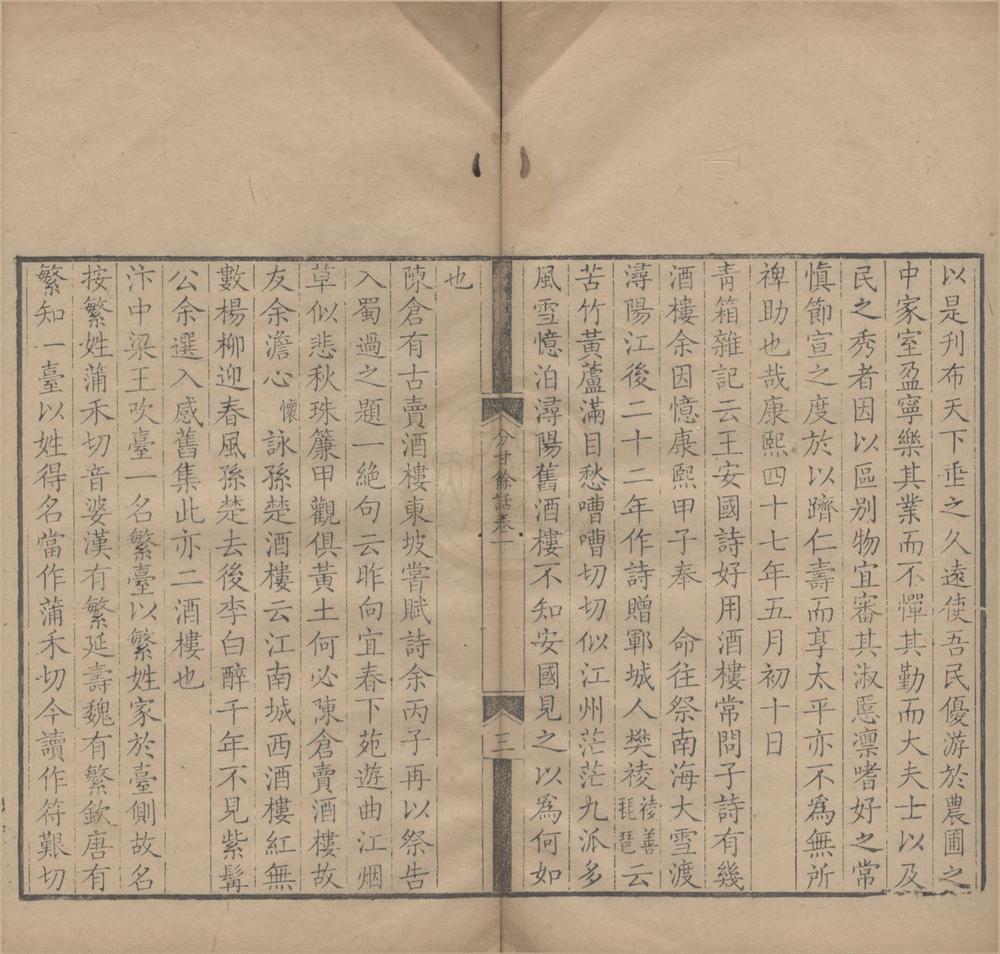 以是刋布天下垂之久遠使吾民優游於農圃之
中家室盈寧樂其業而不憚其勤而大夫士以及
民之秀者因以區别物宜審其淑慝凛嗜好之常
慎節宣之度於以躋仁壽而享太平亦不為無所
裨助也哉康熙四十七年五月初十日
青箱雜記云王安國詩好用酒樓常問子詩有幾
酒樓余因憶康熙甲子奉　命往祭南海大雪渡
潯陽江後二十二年作詩贈鄆城人樊祾祾善琵琶云
苦竹黃蘆滿目愁嘈嘈切切似江州茫茫九派多
風雪憶泊潯陽舊酒樓不知安國見之以為何如
分甘餘話卷一
三
也
陳倉有古賣酒樓東坡嘗賦詩余丙子再以祭告
入蜀過之題一絶句云昨向宜春下苑遊曲江烟
草似悲秋珠簾甲觀俱黃土何必陳倉賣酒樓故
友余澹心懷詠孫楚酒樓云江南城西酒樓紅無
數楊柳迎春風孫楚去後李白醉千年不見紫髯
公余選入感舊集此亦二酒樓也
汴中梁王吹臺一名繁臺以繁姓家於臺側故名
按繁姓蒲禾切音婆漢有繁延壽魏有繁欽唐有
繁知一臺以姓得名當作蒲禾切今讀作符艱切